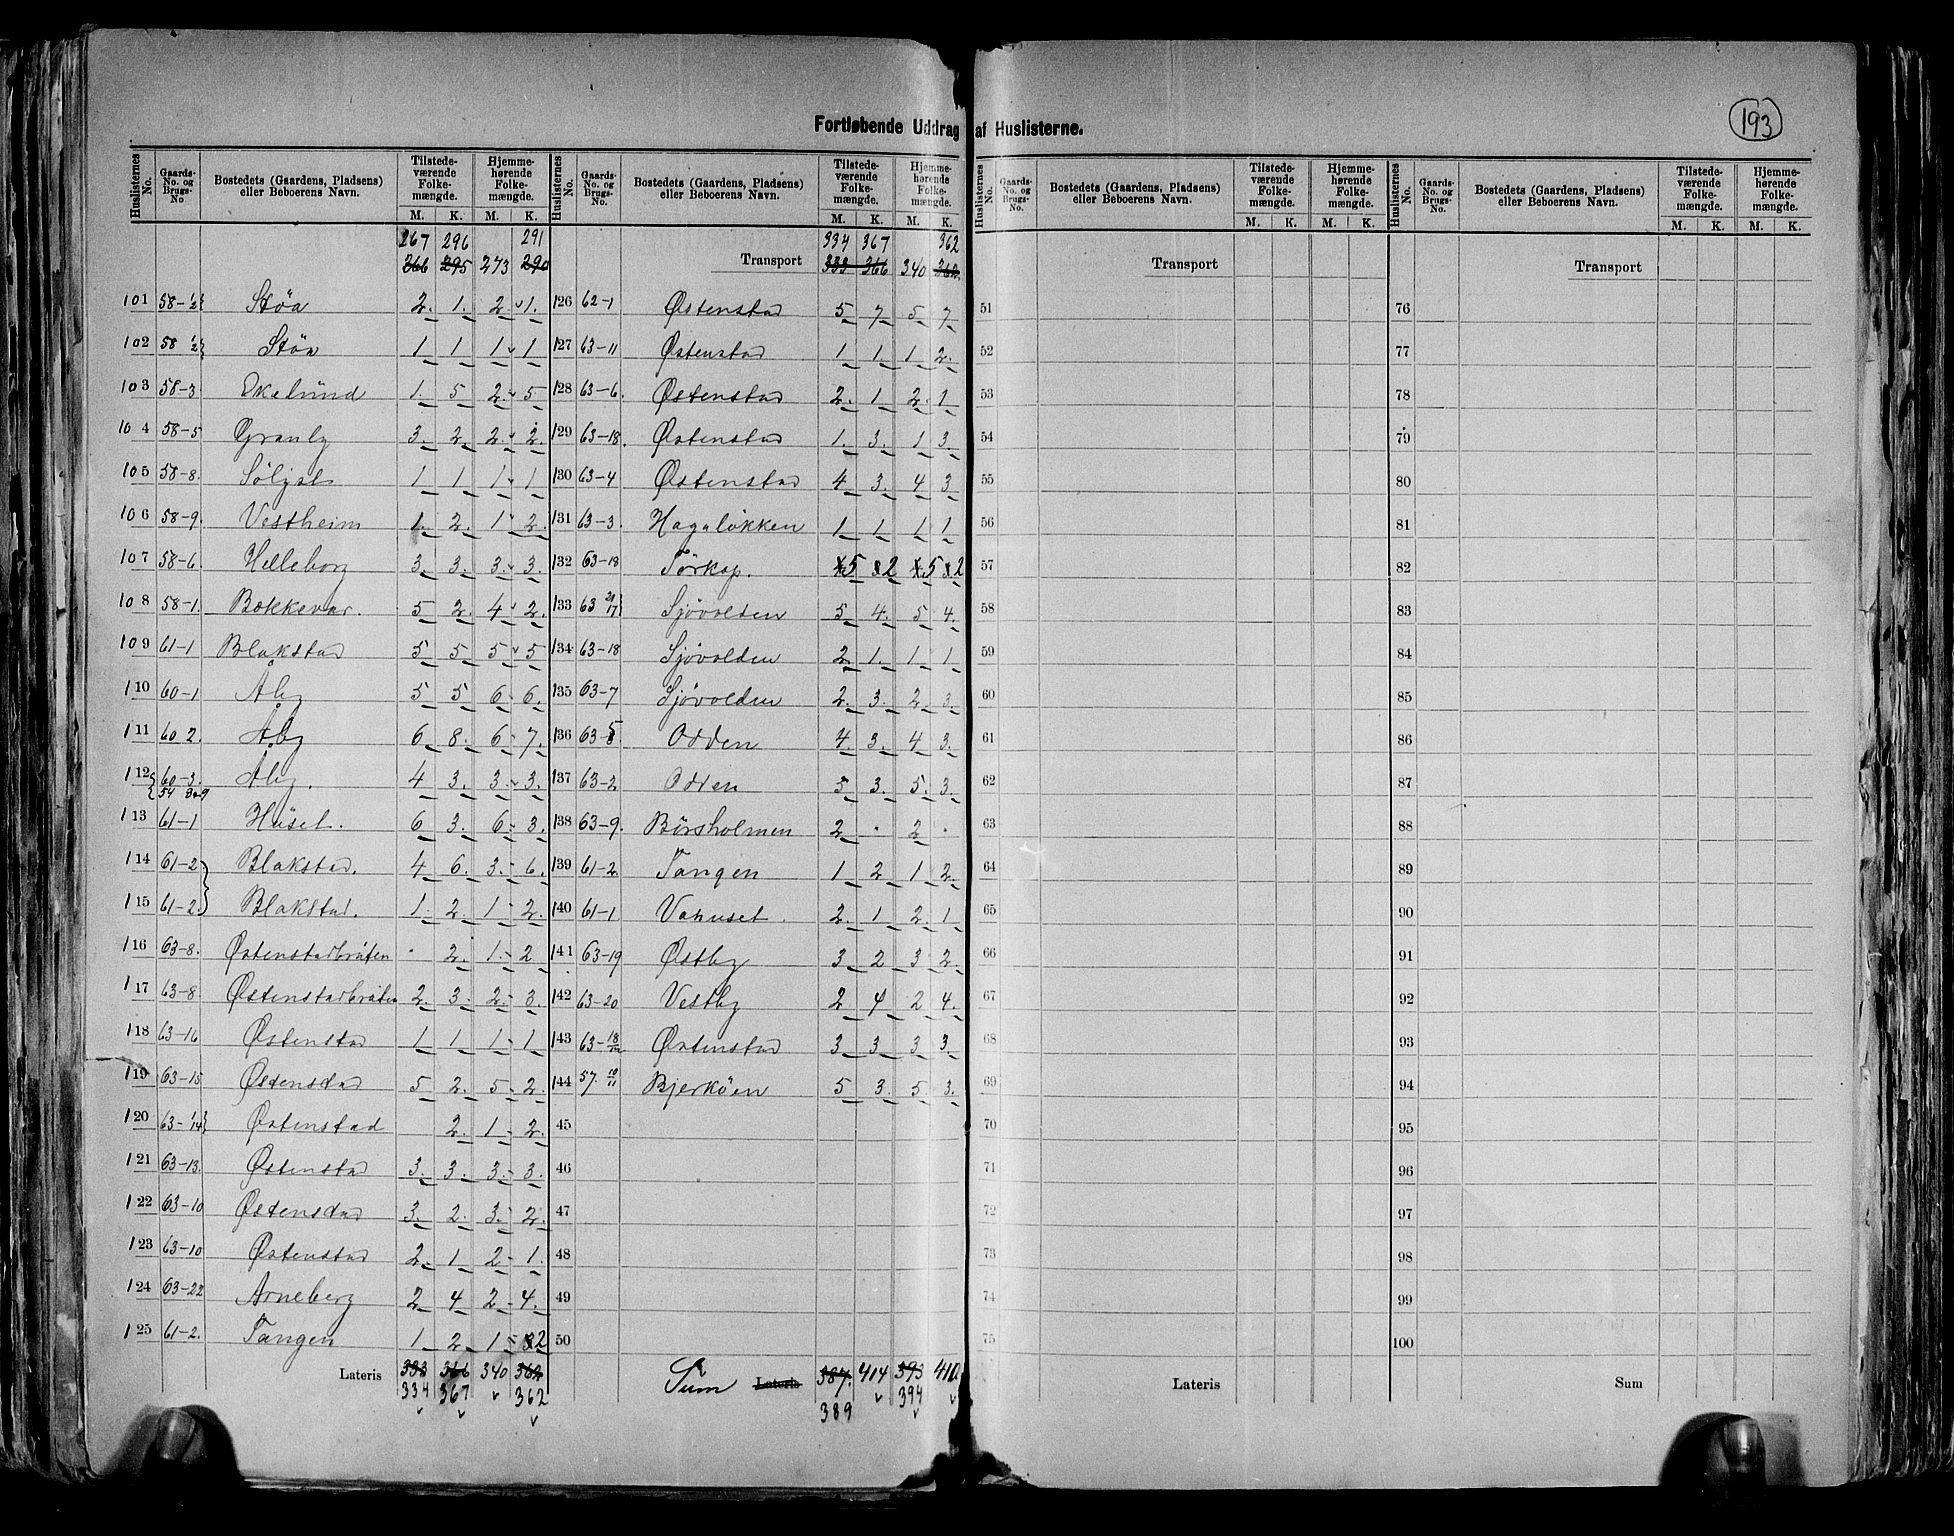 193
Fortløbende Uddrag af Huslisterne.
Huslisternes No. | Gaards-No. og Brugs-No | Bostedets (Gaardens, Pladsens) eller Beboerens Navn. | Tilstedeværende Folkemængde. M. K. | Hjemmehørende Folkemængde. M. K.
267 296 291
366 295 273 290
101 58-1/2 Støa 2. 1. 2 1.
102 58 1/2 Støa 1 1 1 1
103 58-3 Ekelund 1. 5 2. 5
104 58-5 Granly 3. 2. 2. 2.
105 58-8. Sølyst 1 1 1 1
106 58-9. Vestheim 1. 2. 1 2.
107 58-6. Helleborg 3. 3. 3. 3.
108 58-1. Bækkevar. 5 2. 4 2.
109 61-1 Blakstad 5 5 5 5
110 60-1 Åby 5 5 6 6.
111 60 2. Åby 6 8. 6 7.
112 60-3. 54 8-9 Åby. 4 3. 3. 3.
113 61-1 Huset. 6 3. 6 3.
114 61-2 Blakstad. 4 6. 3. 6.
115 61-2. Blakstad. 1 2. 1 2.
116 63-8. Østenstadbråten · 2. 1. 2
117 63-8. Østenstadbråten 2. 3. 2. 3.
118 63-16 Østenstad 1 1 1 1
119 63-15 Østenstad 5 2. 5 2.
120 63-1/14 Østenstad 2. 1 2.
121 63-13. Østenstad 3. 3. 3. 3.
122 63-10 Østenstad 3. 2. 3. 2.
123 63-10 Østenstad 2. 1 2 1.
124 63-22 Arneberg 2 4 2 4.
125 61-2. Tangen 1 2 1 2
Lateris 333 366 340 362
334 367 362
Huslisternes No. | Gaards-No. og Brugs-No. | Bostedets (Gaardens, Pladsens) eller Beboerens Navn. | Tilstedeværende Folkemængde. M. K. | Hjemmehørende Folkemængde. M. K.
334 367 362
Transport 333 366 340 362
126 62-1 Østenstad 5 7 5 7
127 63-11 Østenstad 1 1. 1 2.
128 63-6. Østenstad 2. 1 2. 1
129 63-18. Østenstad 1. 3. 1 3.
130 63-4 Østenstad 4 3. 4 3
131 63-3. Hagaløkken 1 1 1 1
132 63-18 Torkop. 5 2 5 2
133 63 21/17 Sjøvolden 5 4. 5 4.
134 63-18 Sjøvolden 2. 1. 1 1
135 63-7 Sjøvolden 2. 3. 2. 3.
136 63-5 Odden 4 3. 4 3.
137 63-2 Odden 5 3. 5. 3.
138 63-9. Børsholmen 2 · 2 ·
139 61-2. Tangen 1 2 1 2.
140 61-1 Vahuset. 2. 1 2. 1
141 63-19 Østby 3 2 3 2.
142 63-20 Vestby 2 4 2 4.
143 63-18 Østenstad 3 3 3 3.
144 57. 10/11 Bjerkøen 5 3. 5 3.
45
46
47
48
49
50
Sum Lateris 387. 414 393 410
389 394
Huslisternes No. | Gaards-No. og Brugs-No. | Bostedets (Gaardens, Pladsens) eller Beboerens Navn. | Tilstedeværende Folkemængde. M. K. | Hjemmehørende Folkemængde. M. K.
Transport
51
52
53
54
55
56
57
58
59
60
61
62
63
64
65
66
67
68
69
70
71
72
73
74
75
Lateris
Huslisternes No. | Gaards-No. og Brugs-No. | Bostedets (Gaardens, Pladsens) eller Beboerens Navn. | Tilstedeværende Folkemængde. M. K. | Hjemmehørende Folkemængde. M. K.
Transport
76
77
78
79
80
81
82
83
84
85
86
87
88
89
90
91
92
93
94
95
96
97
98
99
100
Sum